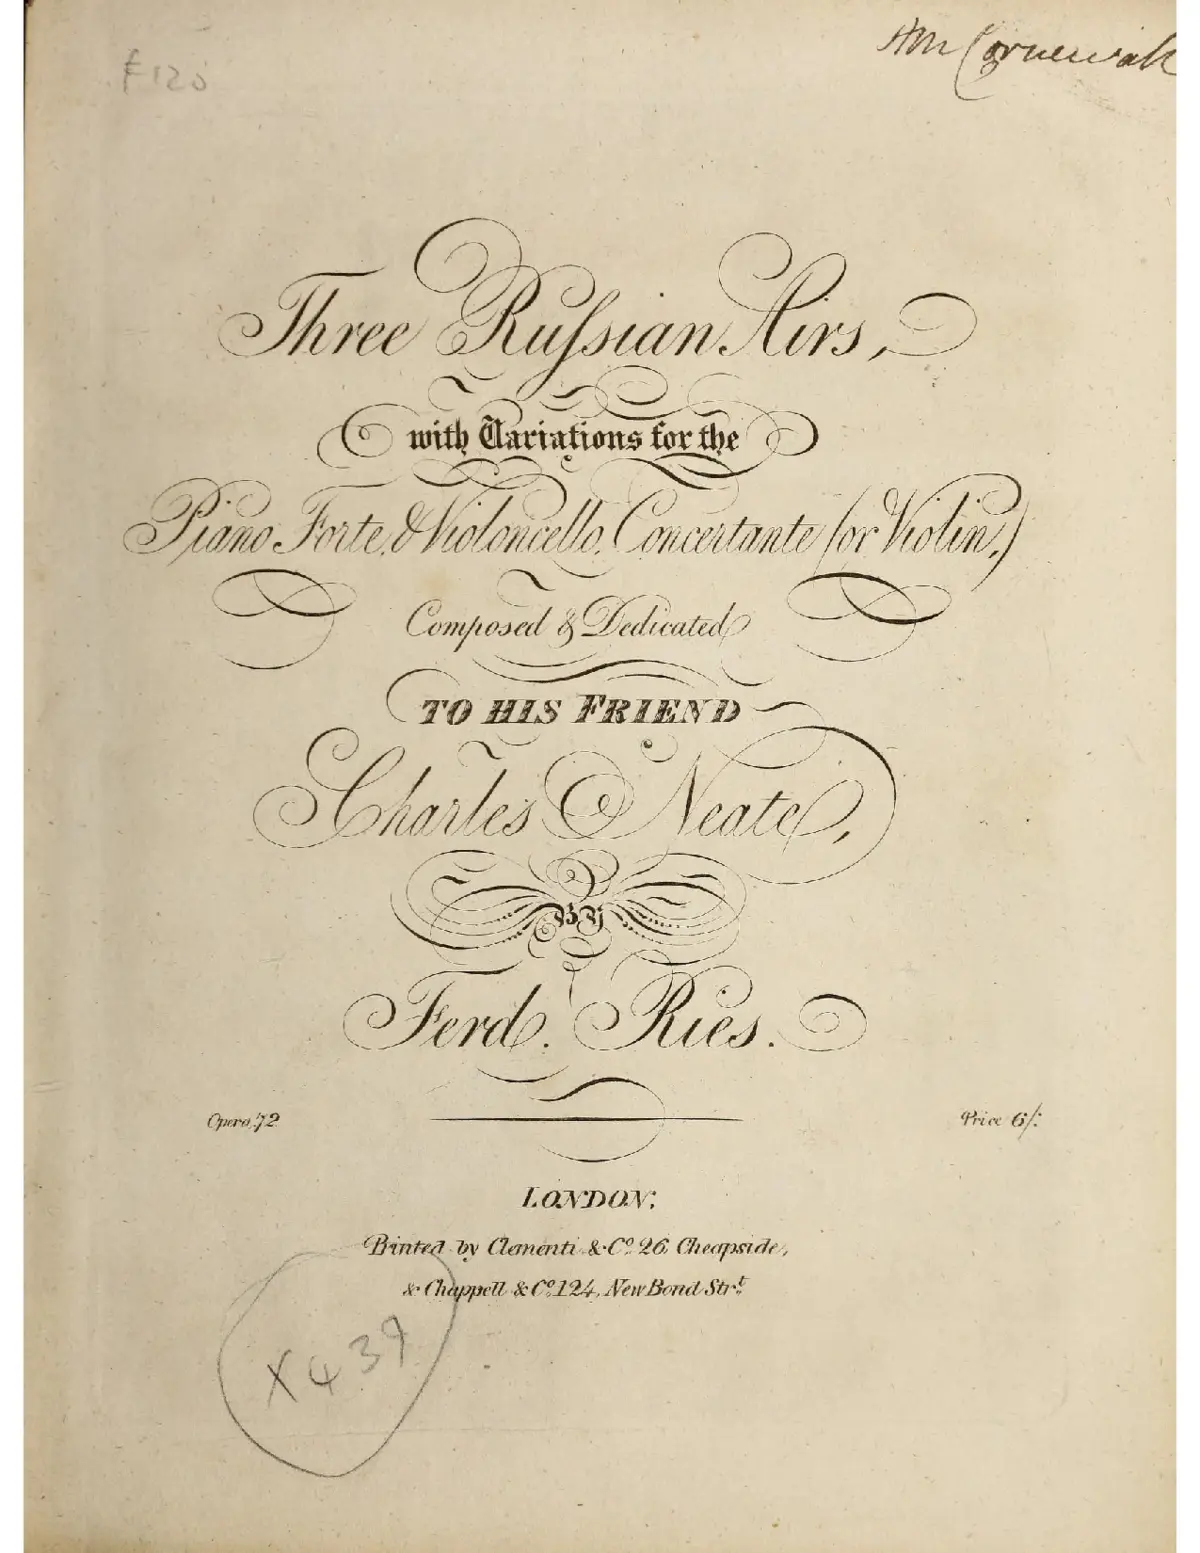 £120
AM Cornewall
Three Ruſsian Airs,
with Variations for the
Piano Forte, & Violoncello, Concertante (or Violin,)
Composed & Dedicated
TO HIS FRIEND
Charles Neate,
BY
Ferd. Ries.
Opera, 72
Price 6/:
LONDON:
Printed by Clementi & Co. 26, Cheapside,
& Chappell & Co. 124, New Bond Strt.
X439